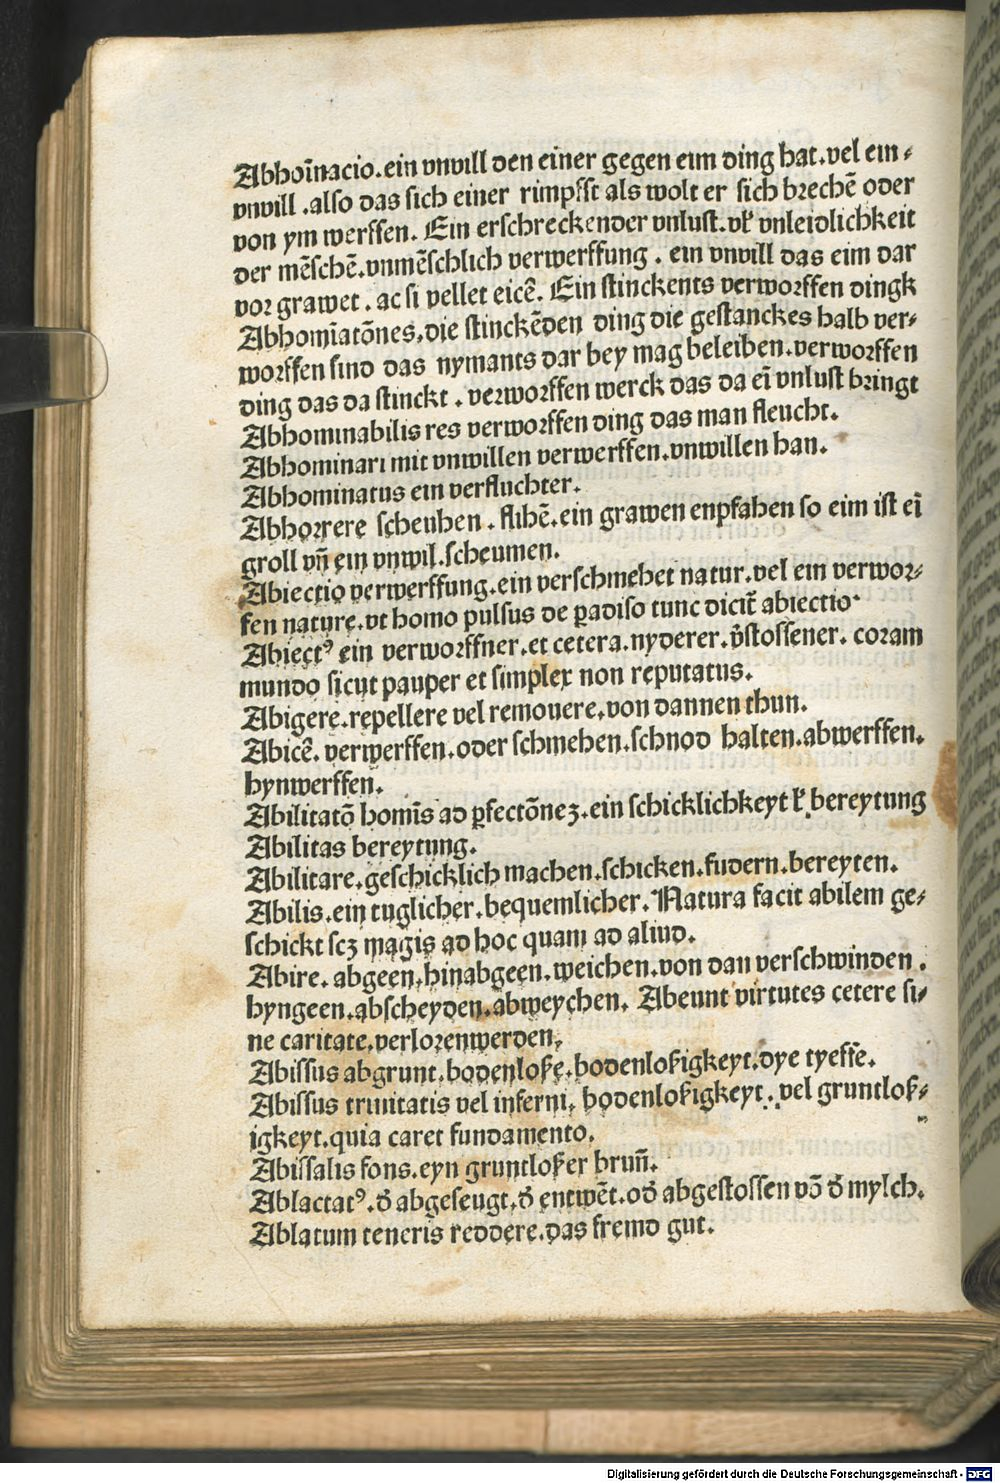 Abhoīnacio.ein vnwill den einer gegen eim ding hat.vel ein-
vnwill .also das sich einer rimpfft als wolt er sich brechē oder
von ym werffen. Ein erschreckender vnlust.vł vnleidlichkeit
der mēschē.vnmēschlich verwerffung . ein vnwill das eim dar
vor grawet . ac si vellet eicē. Ein stinckents verworffen dingk
Abhomīatōnes.die stinckēden ding die gestanckes halb ver-
worffen sind das nymants dar bey mag beleiben.verworffen
ding das da stinckt . verworffen werck das da eī vnlust bringt
Abhominabilis res verworffen ding das man fleucht.
Abhominari mit vnwillen verwerffen.vnwillen han.
Abhominatus ein verfluchter.
Abhorrere scheuhen . flihē.ein grawen enpfahen so eim ist eī
groll vn̄ ein vnwil.scheumen.
Abiectio verwerffung.ein verschmehet natur.vel ein verwor-
fen nature.vt homo pulsus de ꝑadiso tunc dicit̄ abiectio·
Abiectꝰ ein verworffner.et cetera.nyderer.v̄stossener. coram
mundo sicut pauper et simplex non reputatus.
Abigere.repellere vel remouere.von dannen thun.
Abicē. verwerffen.oder schmehen.schnod halten.abwerffen.
hynwerffen.
Abilitatō homīs ad ꝑfectōneꝫ.ein schicklichkeyt ł bereytung
Abilitas bereytung.
Abilitare.geschicklich machen.schicken.fudern.bereyten.
Abilis.ein tuglicher.bequemlicher. Natura facit abilem ge-
schickt scꝫ magis ad hoc quam ad aliud.
Abire. abgeen.hinabgeen.weichen.von dan verschwinden .
hyngeen.abscheyden.abweychen. Abeunt virtutes cetere si-
ne caritate.verlorenwerden.
Abissus abgrunt.bodenloße.bodenloßigkeyt.dye tyeffe.
Abissus trinitatis vel inferni. bodenloßigkeyt. vel gruntloß-
igkeyt.quia caret fundamento.
Abissalis fons.eyn gruntloßer brun̄.
Ablactatꝰ.d̄ abgeseugt.d̄ entwēt.od̄ abgestossen vō d̄ mylch.
Ablatum teneris reddere.das fremd gut.
Digitalisierung gefördert durch die Deutsche Forschungsgemeinschaft - DFG